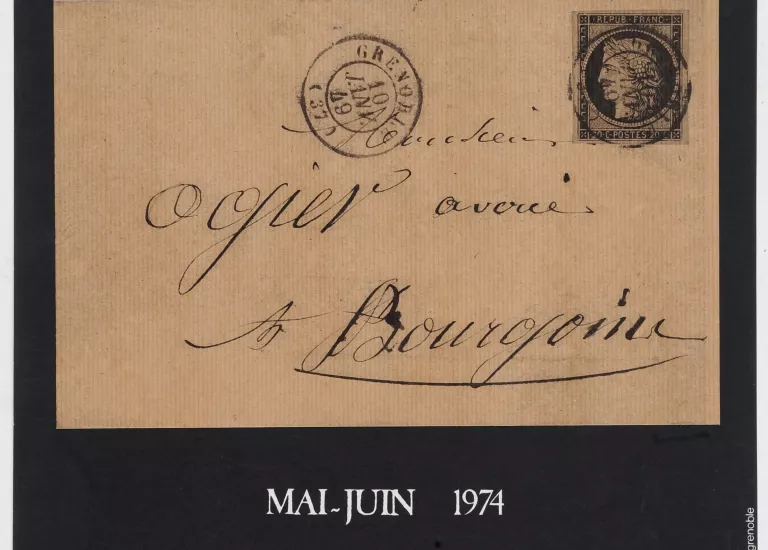 REPUB·FRANC
20·C·POSTES·20·C
GRENOBLE
10
JANV.
49
(37)
Monsieur
Ogier avoué
à Bourgoin
MAI-JUIN 1974
grenoble